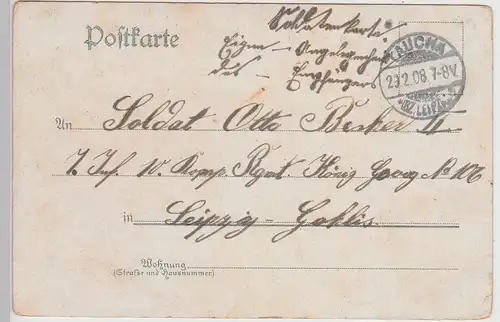 Postkarte
Soldatenkarte
Eigene Angelegenheit
des Empfängers
TAUCHA
2.08 7-8V.
(BZ. LEIPZIG)
An Soldat Otto Becker II
7. Inf. 10. Komp. Rgmt. König Georg No 106
in Leipzig-Gohlis
Wohnung
(Straße und Hausnummer)